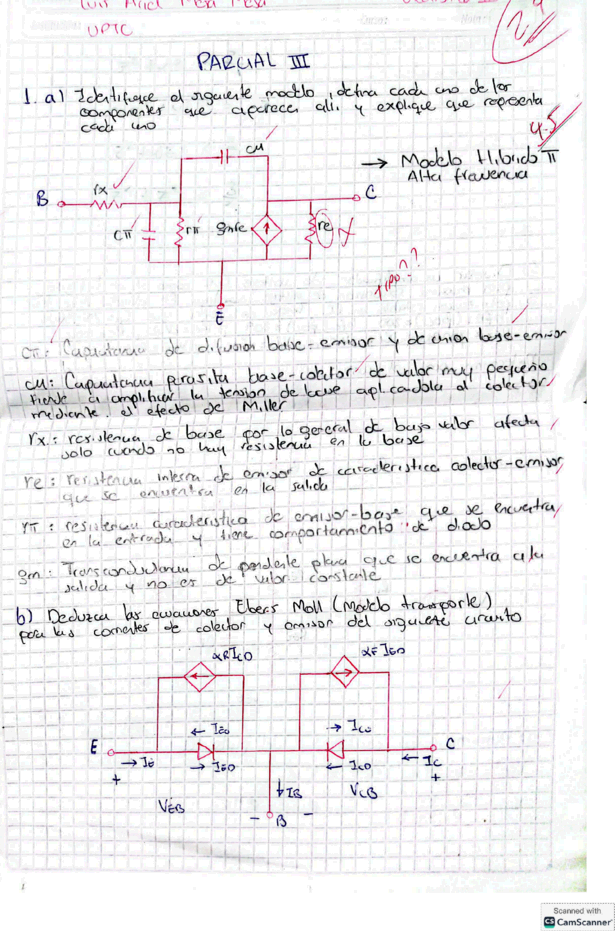 Luis Ariel Mesa Mesa
UPTC
PARCIAL III
4.5
1. a) Identifique el siguiente modelo, defina cada uno de los
componentes que aparecen allí y explique que representa
cada uno
→ Modelo Hibrido π
Alta frecuencia
Cμ
B
rx
C
Cπ
rπ
gmve
re
E
tipo??
Cπ: Capacitancia de difusion base-emisor y de union base-emisor
Cμ: Capacitancia parasita base-colector de valor muy pequeño
tiende a amplificar la tension de base aplicandola al colector
mediante el efecto de Miller
rx: resistencia de base por lo general de bajo valor afecta
solo cuando no hay resistencia en la base
re: resistencia interna de emisor de caracteristica colector-emisor,
que se encuentra en la salida
rπ: resistencia caracteristica de emisor-base que se encuentra
en la entrada y tiene comportamiento de diodo
gm: Transconductancia de pendiente plana que se encuentra a la
salida y no es de valor constante
b) Deduzca las ecuaciones Ebers Moll (Modelo transporte)
para las corrientes de colector y emisor del siguiente circuito
αR ICO
αF IEO
← IEO
→ ICO
E
C
→ IE
→ IEO
← ICO
← IC
+
+
↓ IB
VEB
VCB
-
B
-
Scanned with
CS CamScanner